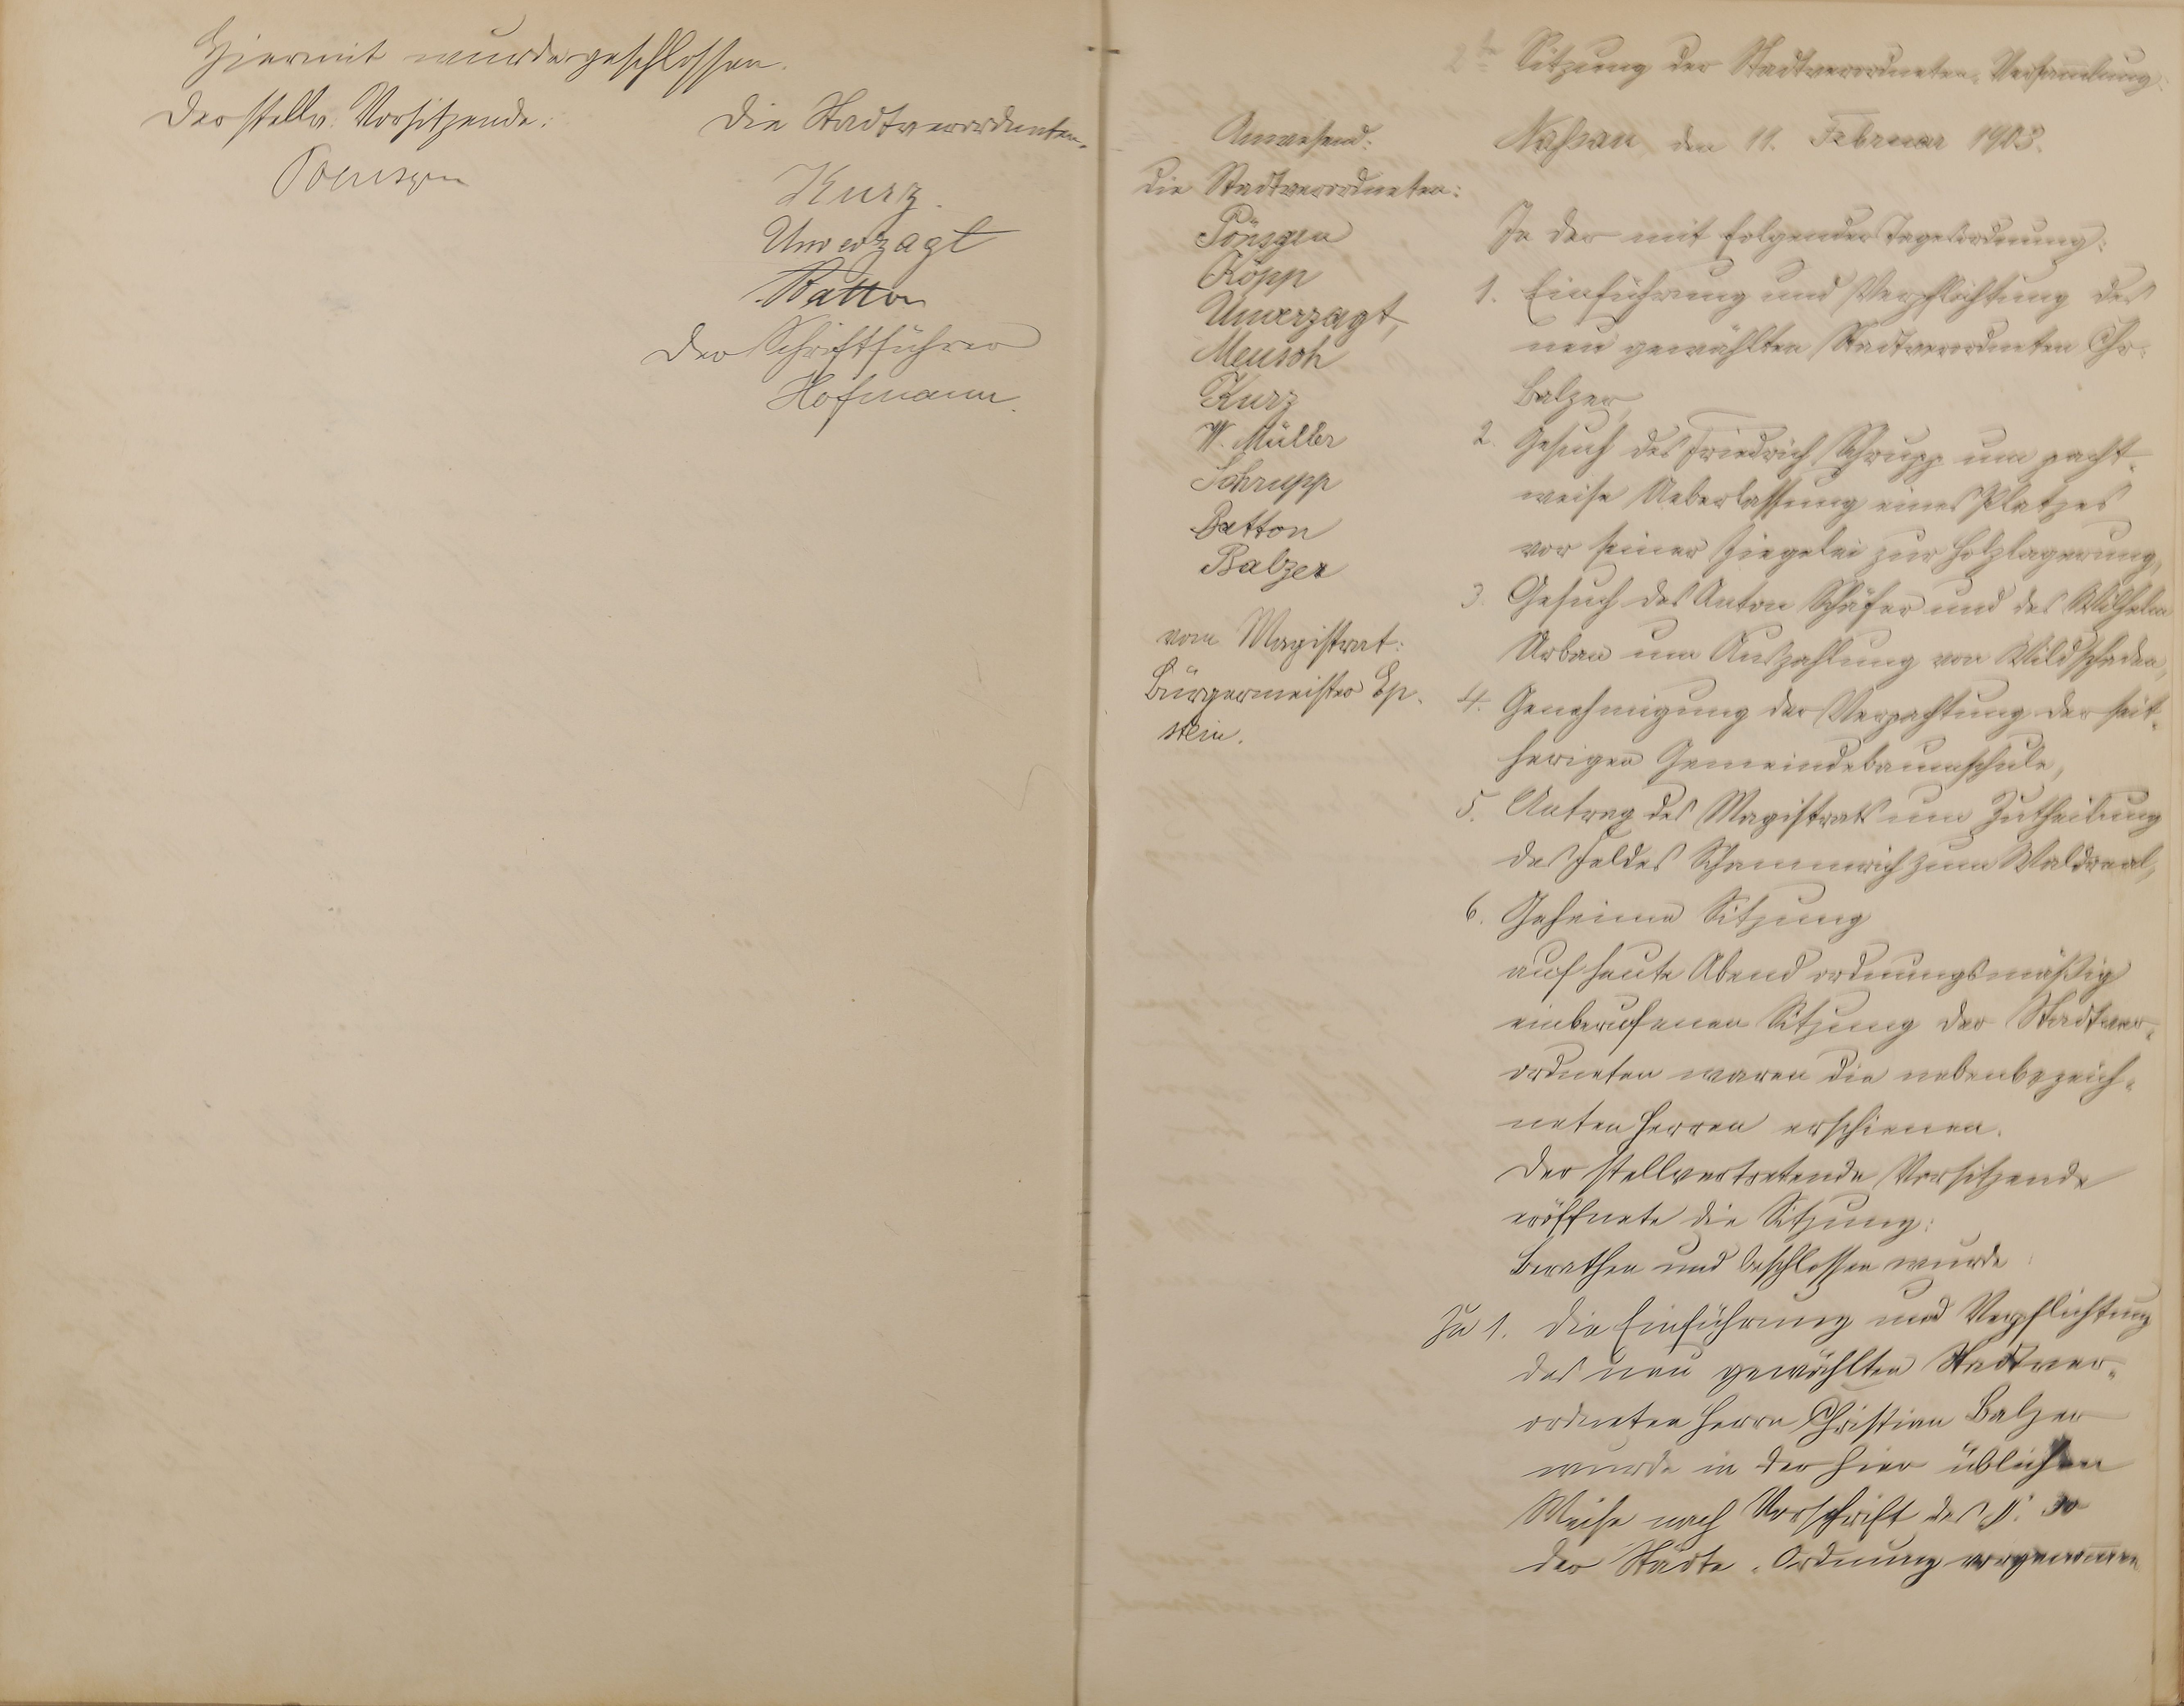 Hiermit wurde geschlossen.
Der stellv. Vorsitzende:
Poensgen
Die Stadtverordneten.
Kurz.
Unverzagt
Batton
Der Schriftführer
Hofmann.
Anwesend:
die Stadtverordneten:
Pönsgen
Köpp
Unverzagt,
Meusch
Kurz
W. Müller
Schrupp
Batton
Balzer
vom Magistrat:
Bürgermeister Ep-
stein.
2te Sitzung der Stadtverordneten-Versammlung.
Nassau, den 11. Februar 1903.
In der mit folgender Tagesordnung:
1. Einführung und Verpflichtung des
neu gewählten Stadtverordneten Chr.
Balzer,
2. Gesuch des Friedrich Schrupp um pacht-
weise Ueberlassung eines Platzes
vor seiner Ziegelei zur Holzlagerung,
3. Gesuch des Anton Schäfer und des Wilhelm
Urban um Auszahlung von Wildschaden,
4. Genehmigung der Verpachtung der seit-
herigen Gemeindebaumschule,
5. Antrag des Magistrats um Zutheilung
des Feldes zum
6. Geheime Sitzung
auf heute Abend ordnungsmäßig
einberufenen Sitzung der Stadtver-
ordneten waren die nebenbezeich-
neten Herren erschienen.
Der stellvertretende Vorsitzende
eröffnete die Sitzung:
Berathen und beschlossen wurde:
Zu 1. Die Einführung und Verpflichtung
des neu gewählten Stadtver-
ordneten Herrn Christian Balzer
wurde in der hier üblichen
Weise nach Vorschrift des §. 30
der Städte-Ordnung vorgenommen